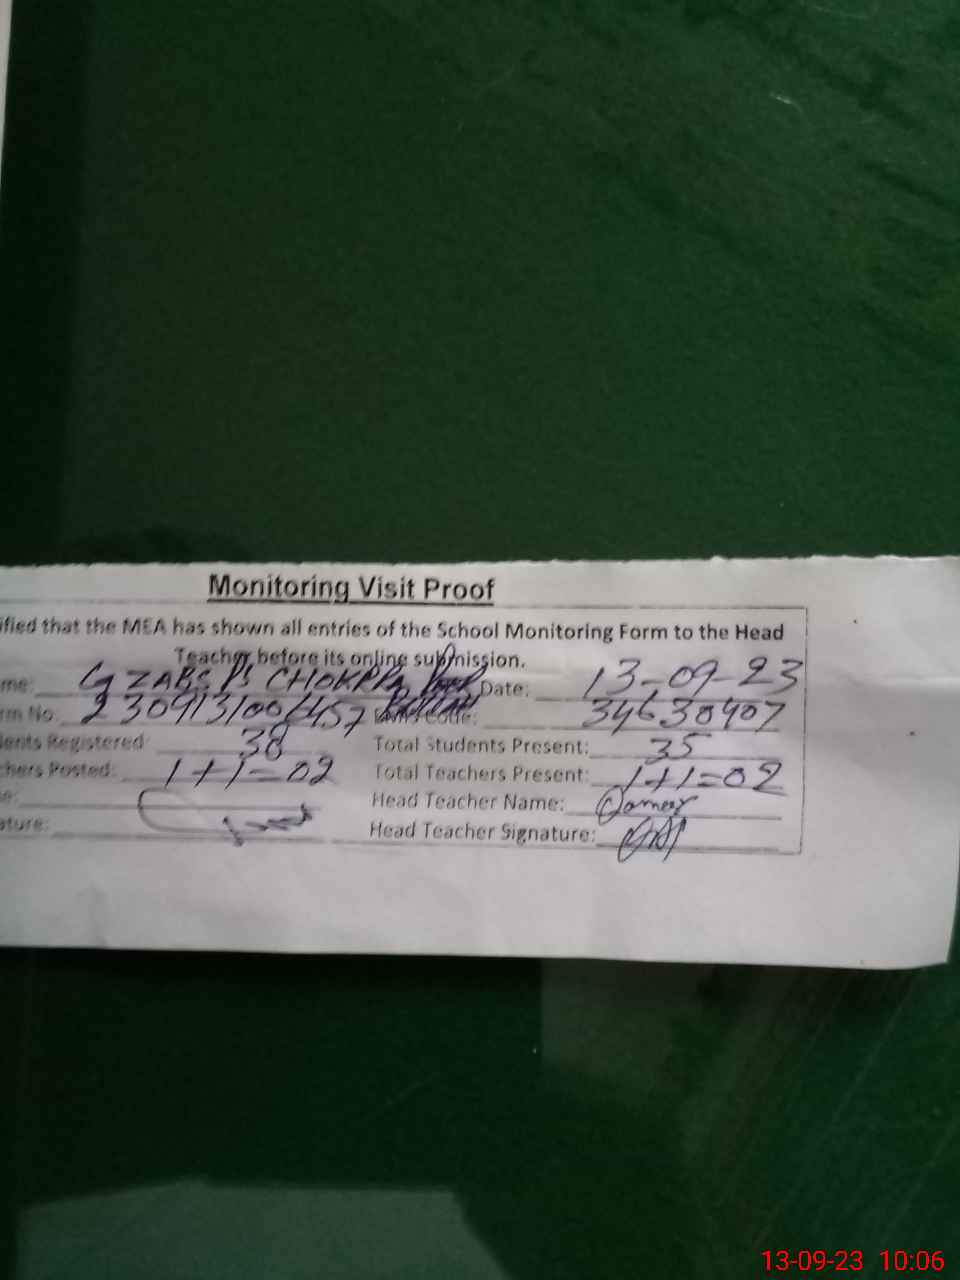 Monitoring Visit Proof
ified that the MEA has shown all entries of the School Monitoring Form to the Head
Teacher before its online submission.
me: GZABS PS CHOKRRA Date: 13-09-23
rm No. Code: 34630407
ents Registered: 38 Total Students Present: 35
chers Posted: 1+1=02 Total Teachers Present: 1+1=02
e: Head Teacher Name:
ature: Head Teacher Signature:
13-09-23 10:06